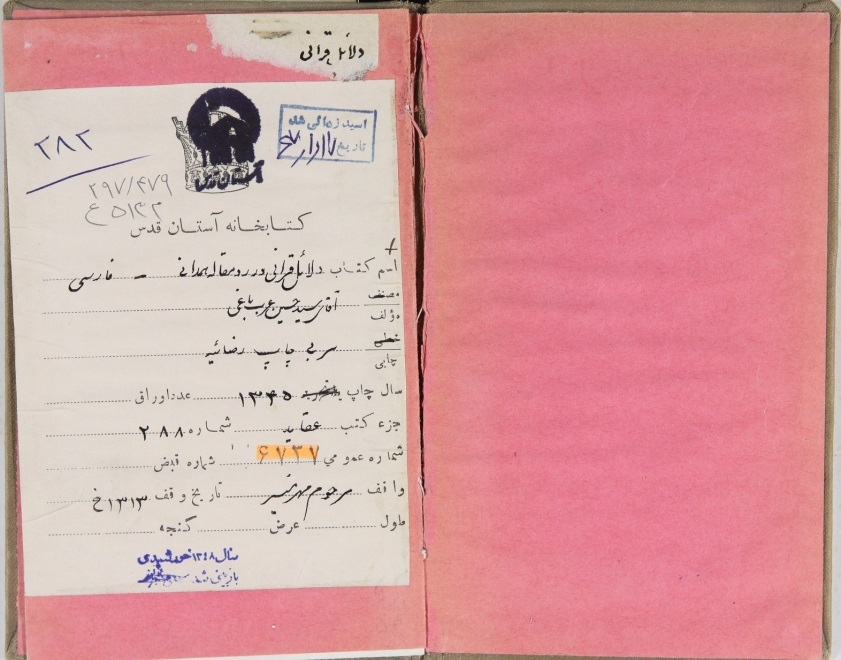 دلائل قرآنی
اسیدزدائی شد
تاریخ
۲۸۲
آستان قدس
۲۹۷/۴۷۹
ع ۵۱۴۳
کتابخانه آستان قدس
اسم کتاب دلائل قرآنی در رد مقاله همدانی - فارسی
مصنف
مؤلف
آقای سید حسین عرب باغی
خطی
چاپی
سربی چاپ رضائیه
سال چاپ ۱۳۴۵ عدد اوراق
جزء کتب عقاید شماره ۲۸۸
شماره عمومي ۶۷۳۷ شماره قبض
واقف مرحوم تاریخ وقف ۱۳۱۳ خ
طول عرض گنجه
سال ۱۳۴۸ خورشیدی
بازبینی شد